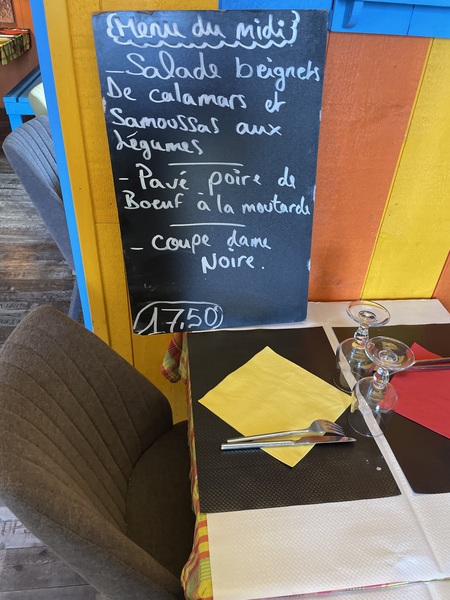 {Menu du midi}
- Salade beignets
De calamars et
Samoussas aux
légumes
- Pavé poire de
Boeuf à la moutarde
- Coupe dame
Noire.
17,50